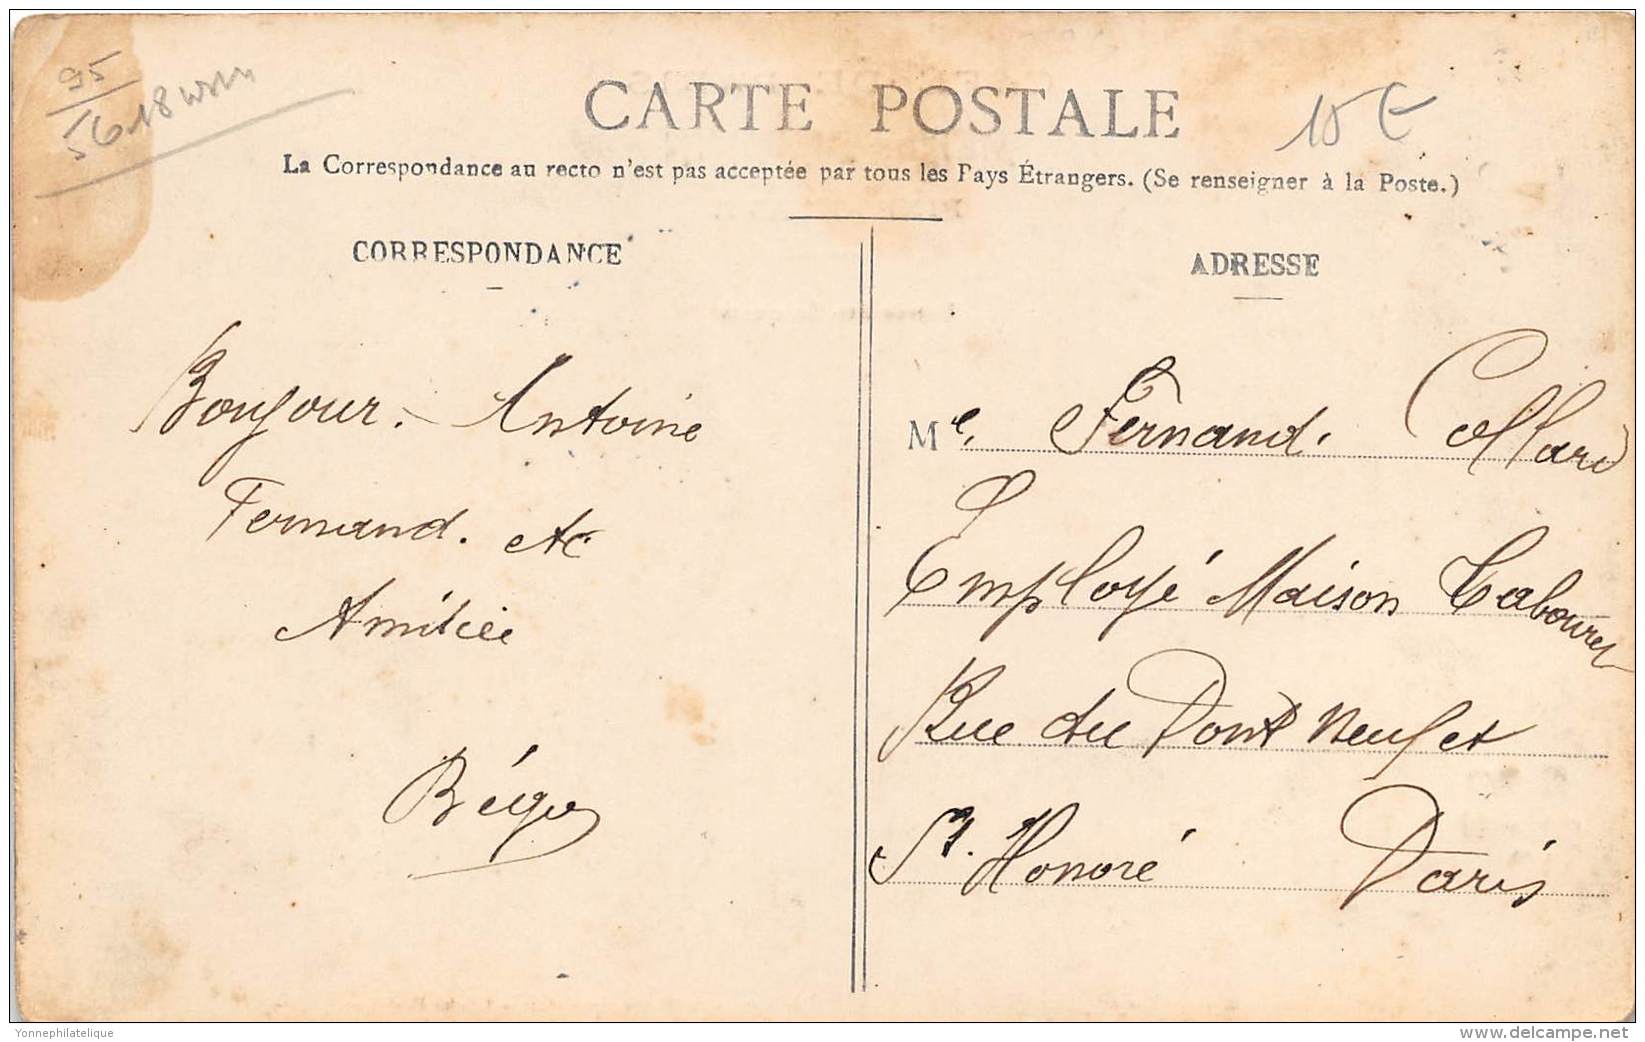 95
5618
15 €
CARTE POSTALE
La Correspondance au recto n'est pas acceptée par tous les Pays Étrangers. (Se renseigner à la Poste.)
CORRESPONDANCE
Bonjour. Antoine
Fernand. et
Amitiée
ADRESSE
Me. Fernand. Collard
Employé Maison Cabouret
Rue du Pont Neuf et
St. Honoré Paris
Yonnephilatelique
delcampe.net